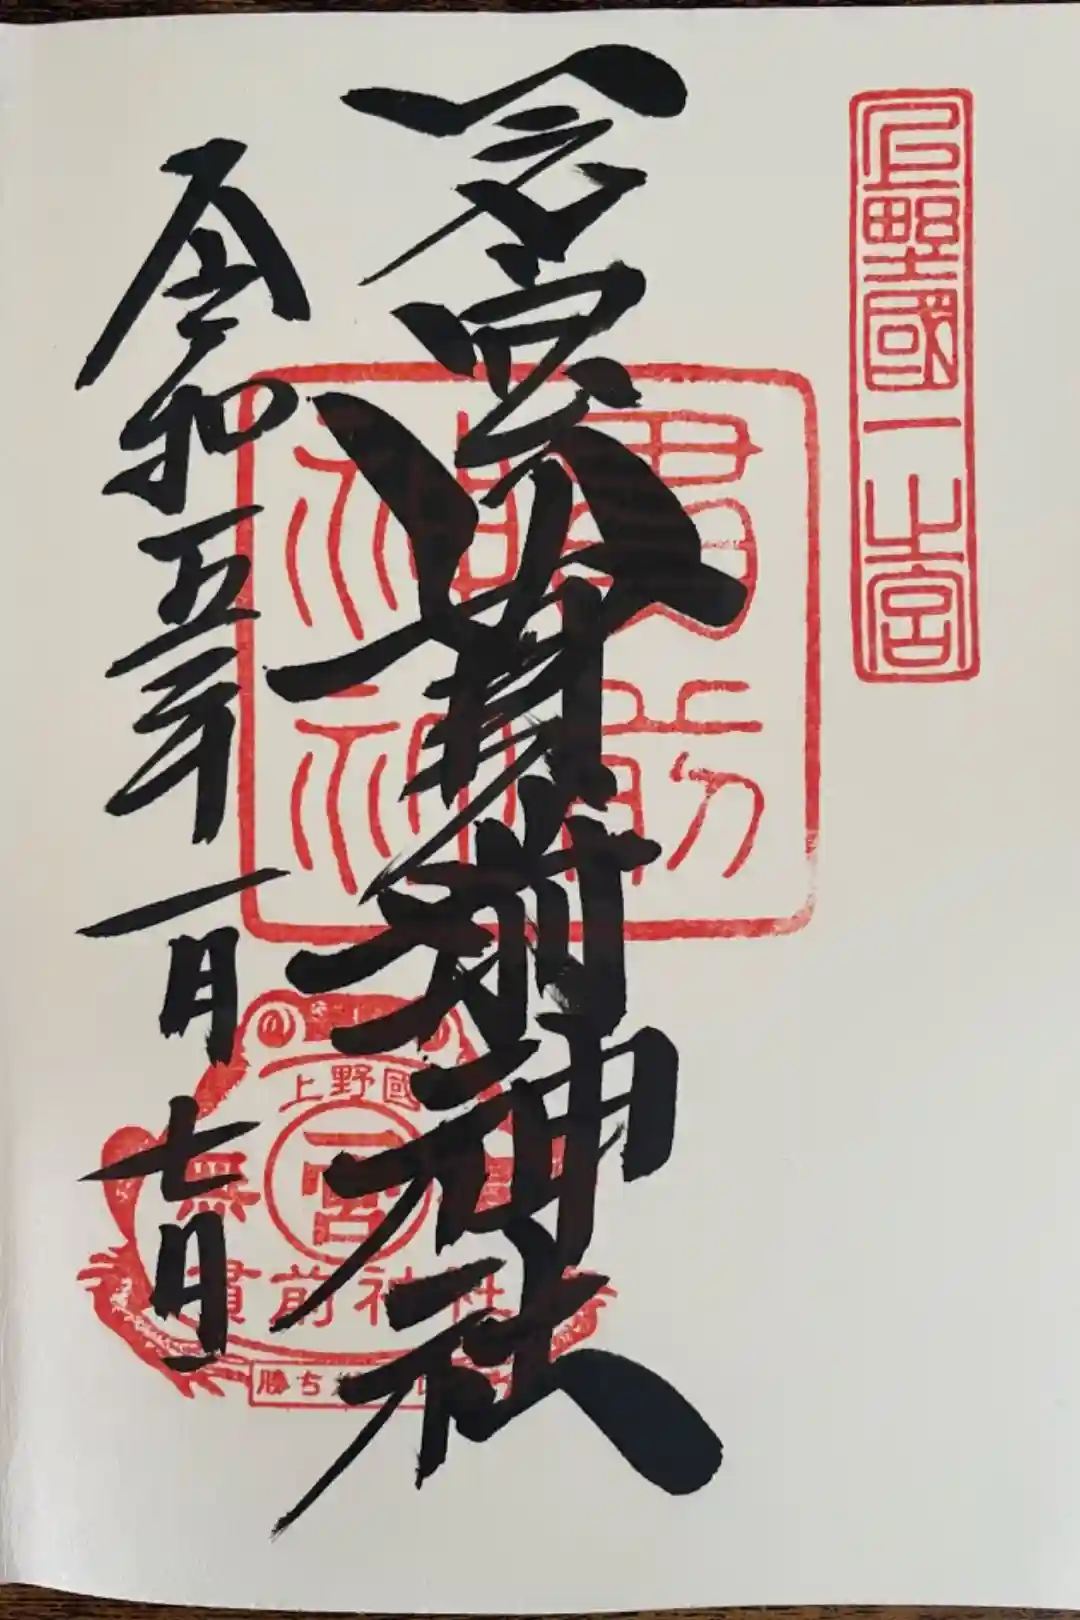 上野國一之宮
一之宮貫前神社
貫前神社
令和五年一月七日
上野國
一宮
無
貫前神社
勝ち